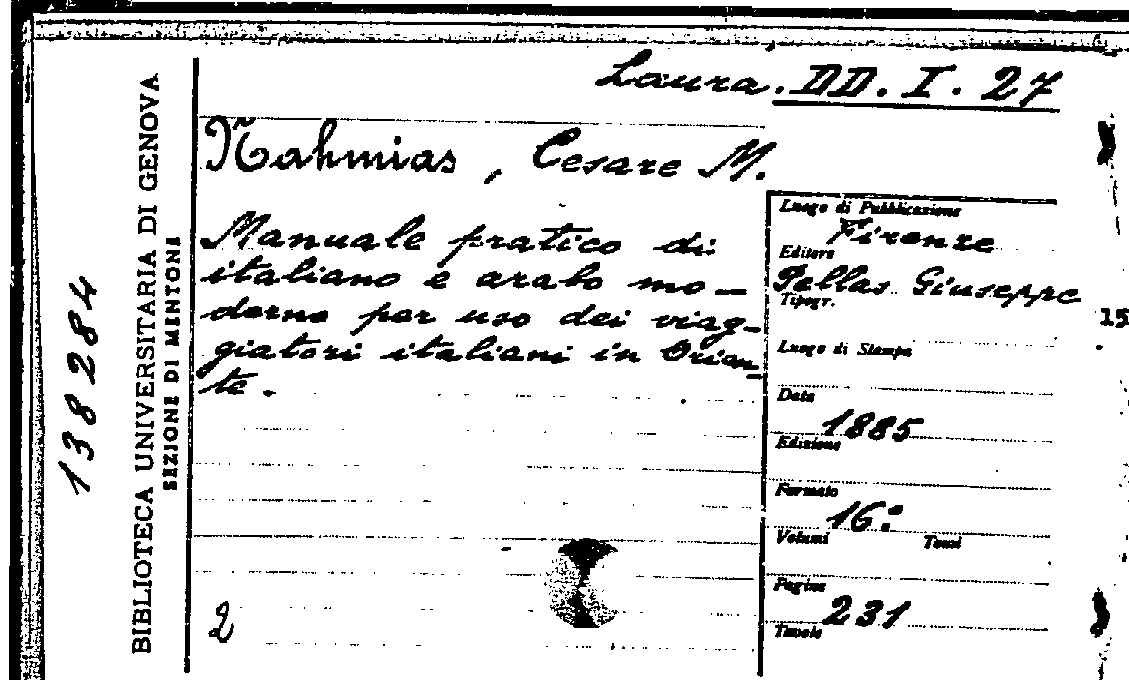 Laura. DD. I. 27
Nahmias, Cesare M.
Manuale pratico di
italiano e arabo mo-
derno per uso dei viag-
giatori italiani in Orien-
te.
2
Luogo di Pubblicazione
Firenze
Editore
Pellas Giuseppe
Tipogr.
Luogo di Stampa
Data
1885
Edizione
Formato
16°
Volumi Tomi
Pagine
231
Tavole
15
138284
BIBLIOTECA UNIVERSITARIA DI GENOVA
SEZIONE DI MENTONE